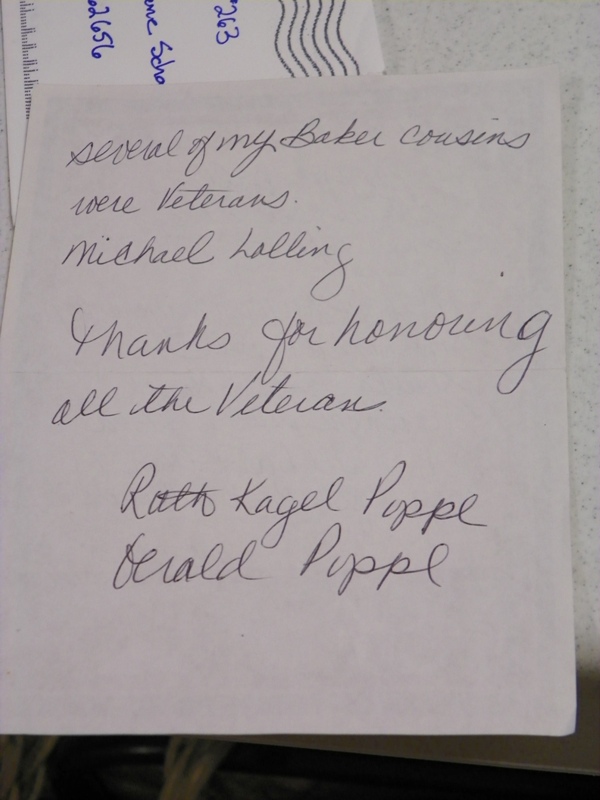 263
me Scho
62656
several of my Baker cousins
were Veterans.
Michael Lolling
Thanks for honouring
all the Veterans.
Ruth Kagel Poppe
Derald Poppe